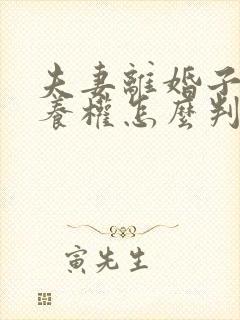 夫妻離婚子
養權怎麼判
寅先生